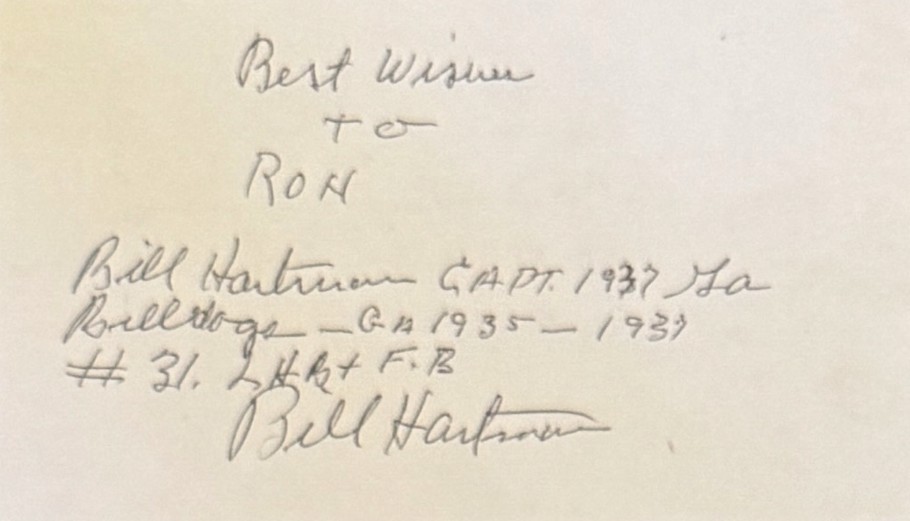 Best Wishes
to
RON
Bill Hartman CAPT. 1937 Ga
Bulldogs — GA 1935 — 1937
# 31. LHB + F.B
Bill Hartman